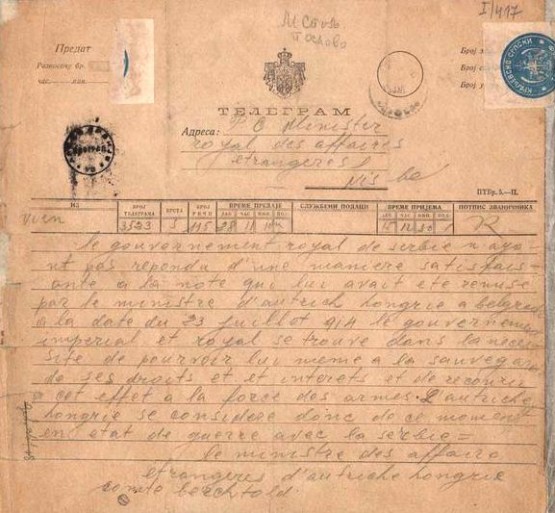 I/417
Предат
час
Број
Број
Број
КРАЉЕВСКО СРПСКИ
ТЕЛЕГРАМ
Адреса:
Minister
royal des affaires
etrangeres
Nis
ПТБр. 5.—II.
ИЗ
БРОЈ ТЕЛЕГРАМА
ВРСТА
БРОЈ РЕЧИ
ВРЕМЕ ПРЕДАЈЕ
СЛУЖБЕНИ ПОДАЦИ
ВРЕМЕ ПРИЈЕМА
ПОТПИС ЗВАНИЧНИКА
3523
115
28
R
le gouvernement royal de serbie n aya
nt pas repondu d'une maniere satisfais
ante a la note qui lui avait ete remise
par le ministre d'autrich hongrie a belgrad
a la date du 23 juillot 914 le gouvernement
imperial et royal se trouve dans la neces
site de pourvoir lui meme a la sauvegar
de ses droits et et interets et de recourir
a cet effet a la force des armes. L'autriche
hongrie se considere donc de ce moment
en etat de guerre avec la serbie =
le ministre des affaire
etrangeres d'autriche hongrie
comte berchtold.